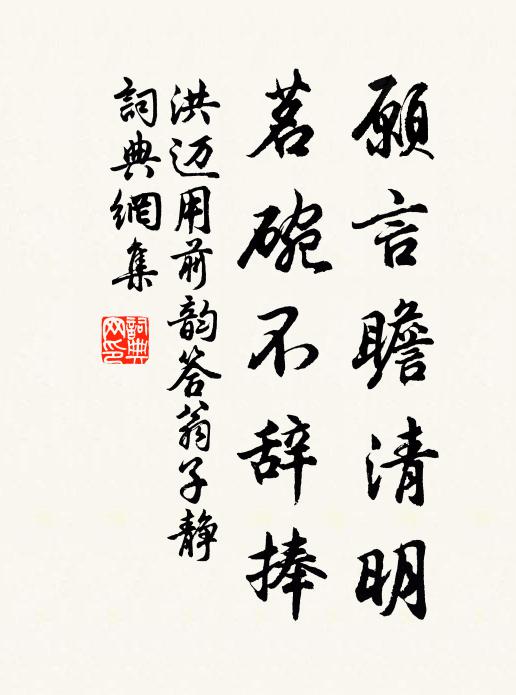 愿言瞻清明
茗碗不辞捧
洪迈用前韵答翁子静
詞典網集
詞典
网印